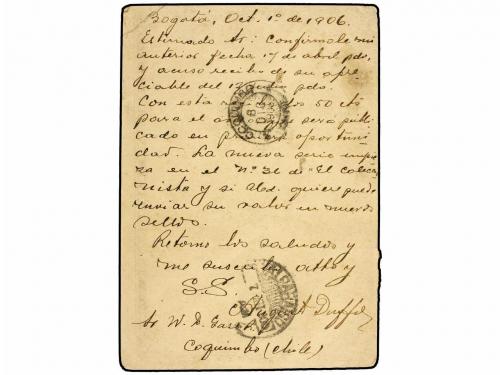 Bogotá, Oct. 1º de 1906.
Estimado Sr: Confirmole mi
anterior fecha 17 de abril pdo,
y acuso recibo de su apre
ciable del 17 pdo.
Con esta los 50 cts
para el que será publi
cado en oportuni
dad. La nueva serie empie
za en el Nº 31 de "El colec
nista y si Ud. quiere puede
enviar su valor en nuevos
sellos.
Retorno los saludos y
me suscribo atto y
S.S.
Duffo
Sr W. D.
Coquimbo (Chile)
COQUIMBO